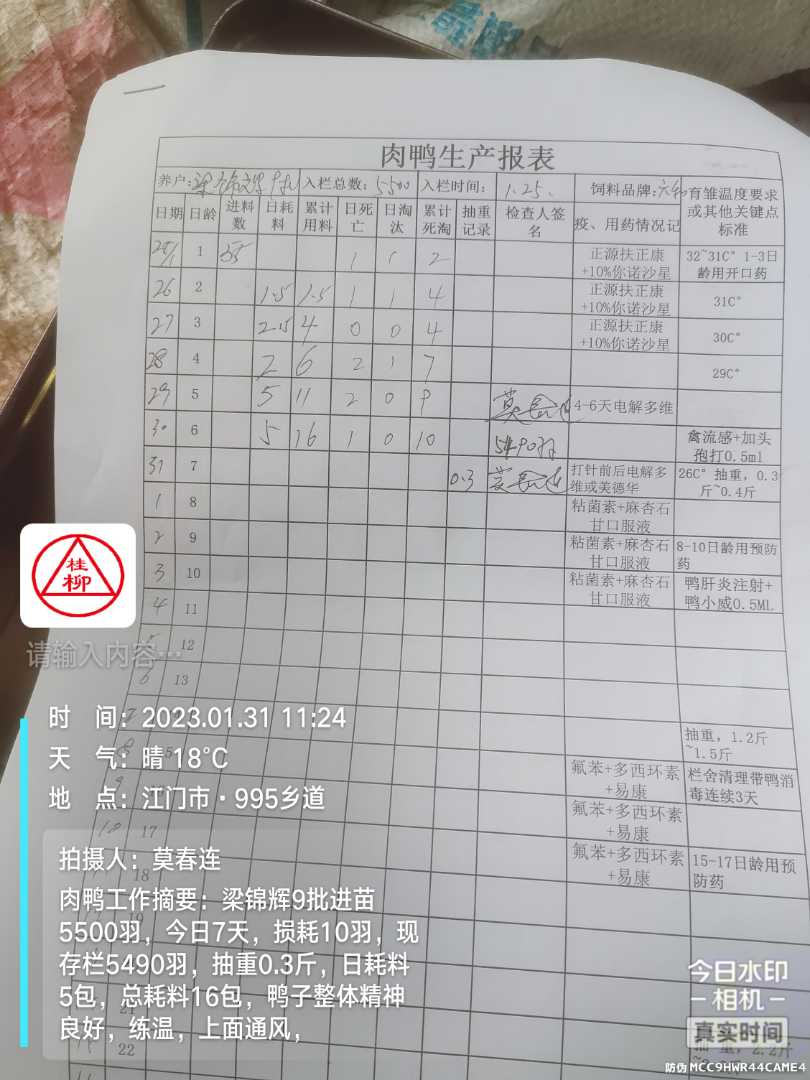 肉鸭生产报表
养户: 入栏总数: 5500 入栏时间: 1.25. 饲料品牌: 六和 育雏温度要求或其他关键点标准
日期 日龄 进料数 日耗料 累计用料 日死亡 日淘汰 累计死淘 抽重记录 检查人签名 疫、用药情况记
25/1 1 55 1 1 2 正源扶正康+10%你诺沙星 32~31C° 1-3日龄用开口药
26 2 1.5 1.5 1 1 4 正源扶正康+10%你诺沙星 31C°
27 3 2.5 4 0 0 4 正源扶正康+10%你诺沙星 30C°
28 4 2 6 2 1 7 29C°
29 5 5 11 2 0 9 莫春连 4-6天电解多维
30 6 5 16 1 0 10 5490羽 禽流感+加头孢打0.5ml
31 7 0.3 莫春连 打针前后电解多维或美德华 26C° 抽重，0.3斤~0.4斤
1 8 粘菌素+麻杏石甘口服液
2 9 粘菌素+麻杏石甘口服液 8-10日龄用预防药
3 10 粘菌素+麻杏石甘口服液 鸭肝炎注射+鸭小威0.5ML
4 11
5 12
6 13
7 抽重，1.2斤~1.5斤
8 氟苯+多西环素+易康 栏舍清理带鸭消毒连续3天
9 氟苯+多西环素+易康
10 17 氟苯+多西环素+易康 15-17日龄用预防药
18
19
21
22 2.2斤
桂柳
请输入内容…
时 间: 2023.01.31 11:24
天 气: 晴 18℃
地 点: 江门市·995乡道
拍摄人: 莫春连
肉鸭工作摘要: 梁锦辉9批进苗
5500羽，今日7天，损耗10羽，现
存栏5490羽，抽重0.3斤，日耗料
5包，总耗料16包，鸭子整体精神
良好，练温，上面通风，
今日水印
相机
真实时间
防伪 MCC9HWR44CAME4